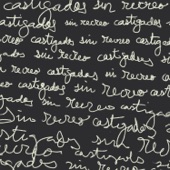 castigados sin recreo
castigados sin recreo
sin recreo castigados
castigados sin recreo
castigados sin recreo
recreo castigados sin
castigados sin recreo
sin recreo casti
Sin recreo castigados
castigados sin
recreo castigados